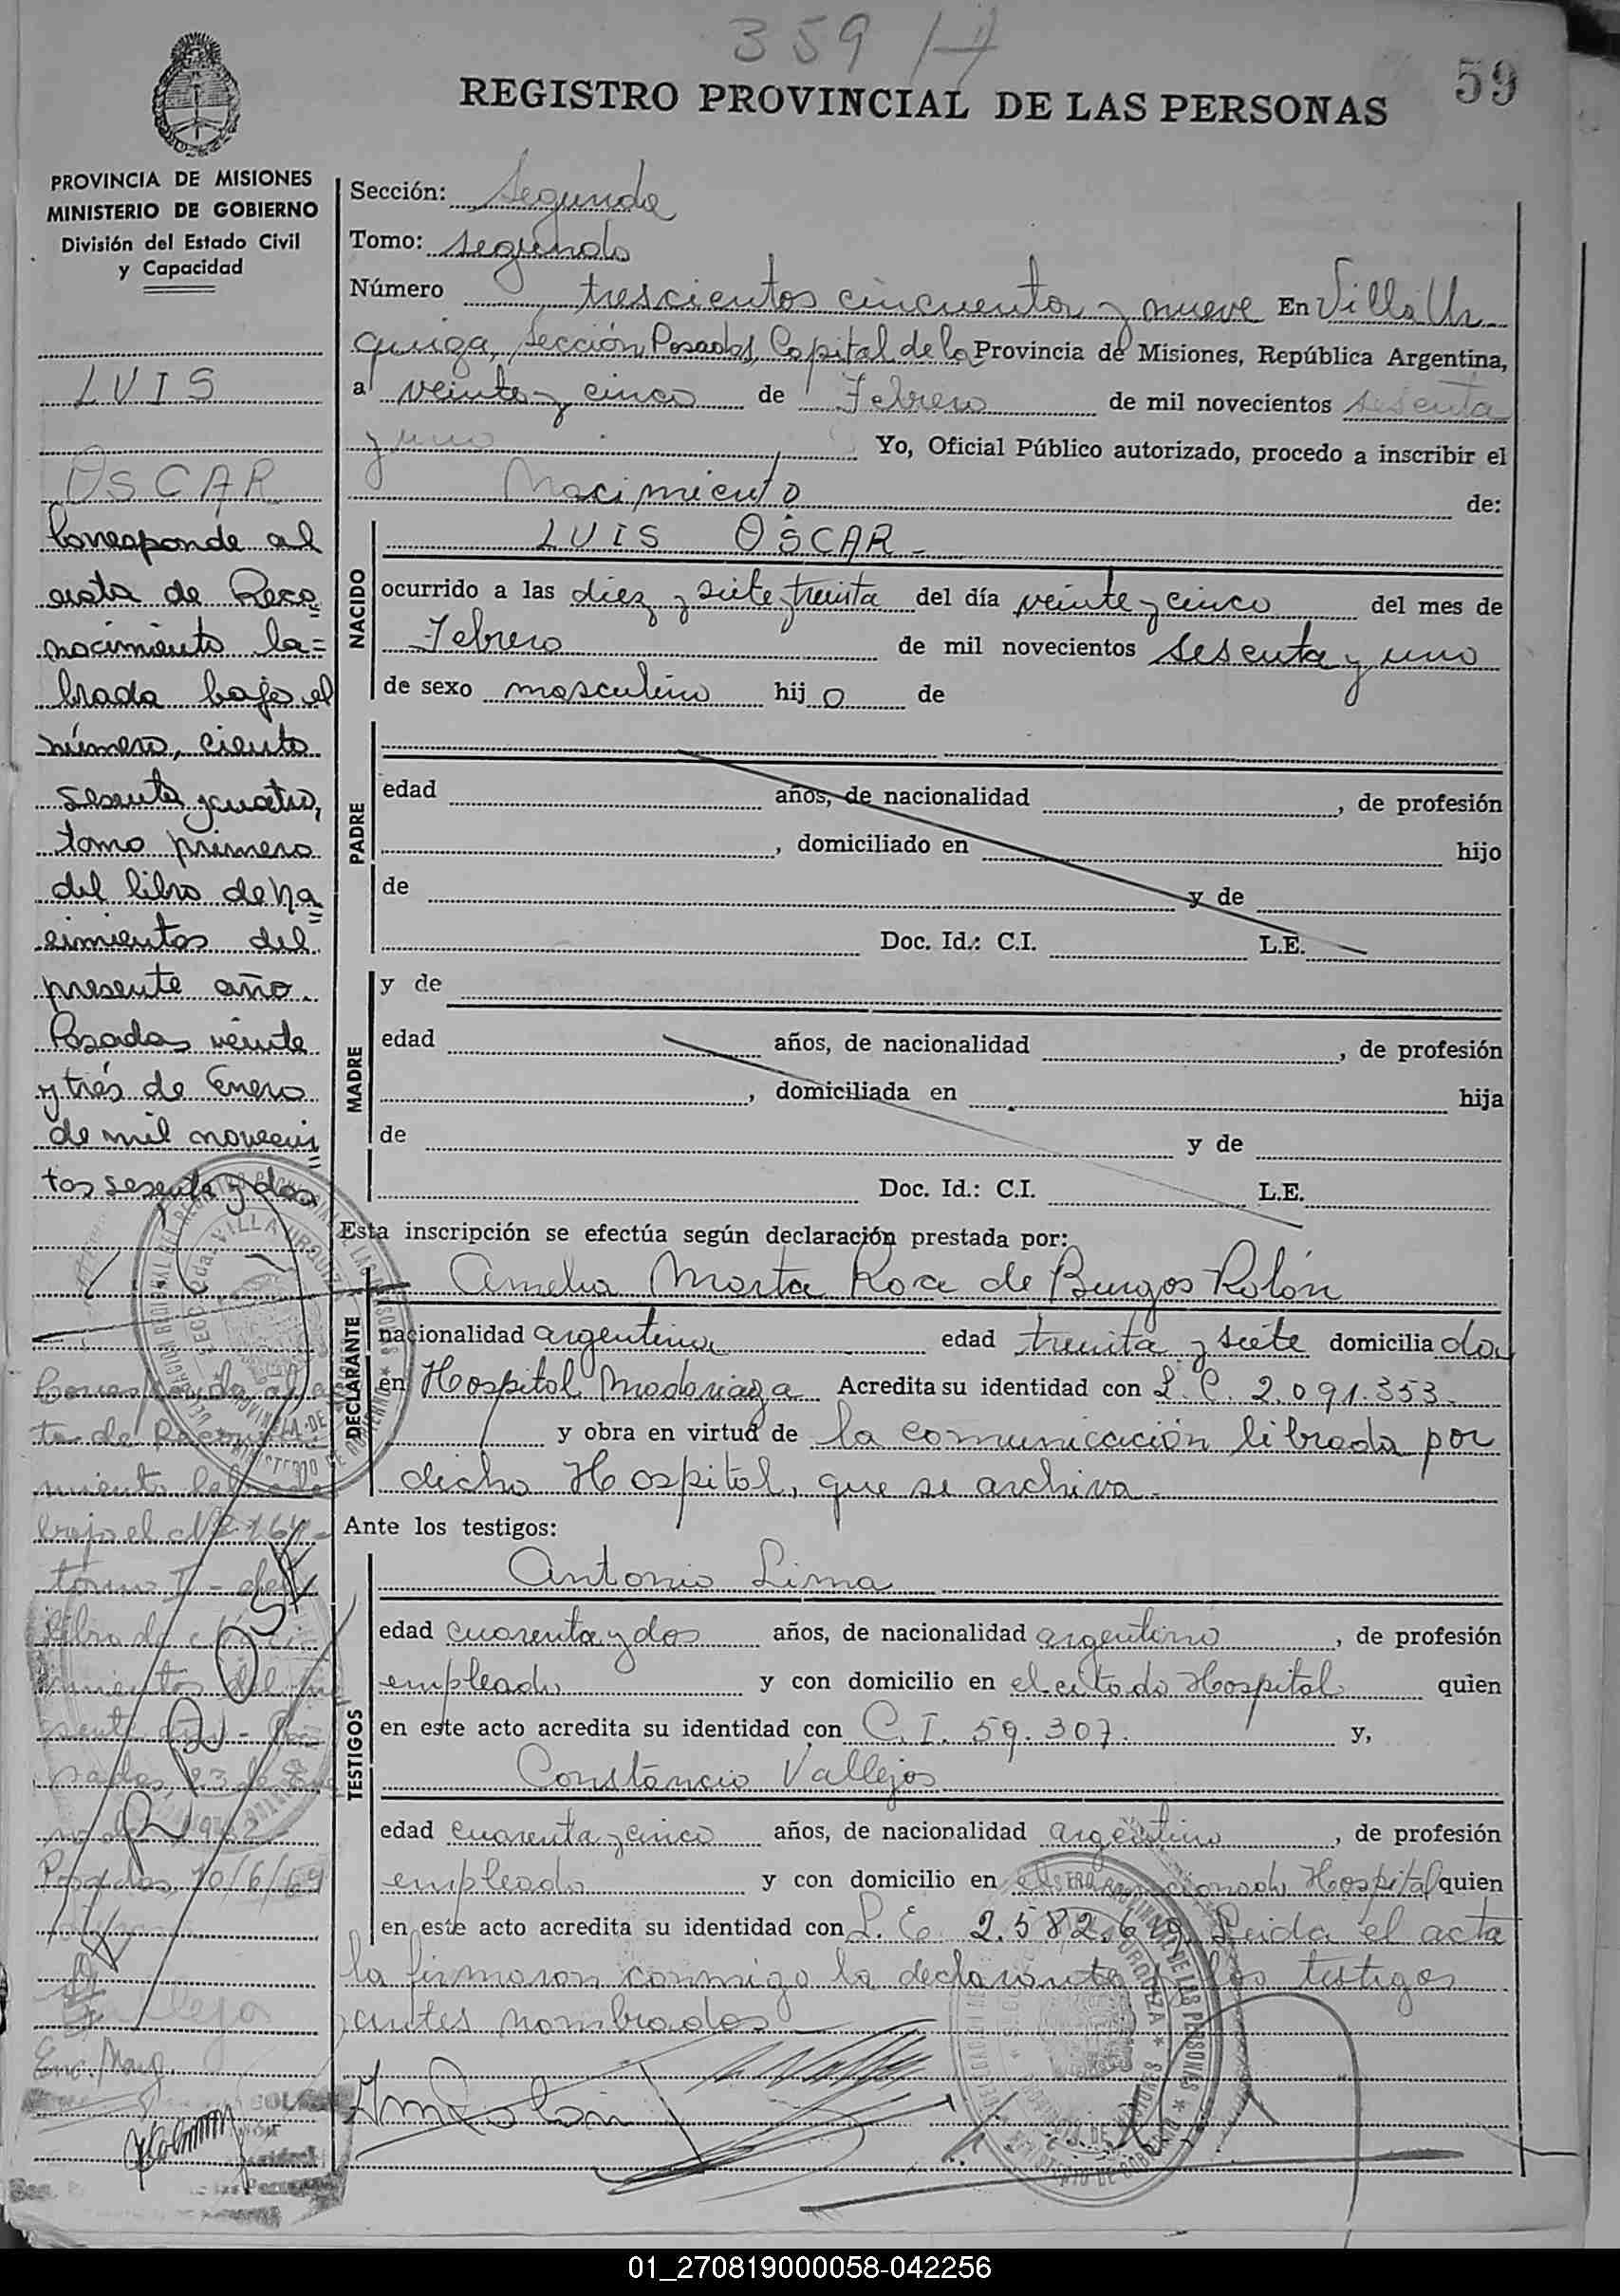 359
59
REGISTRO PROVINCIAL DE LAS PERSONAS
PROVINCIA DE MISIONES
MINISTERIO DE GOBIERNO
División del Estado Civil
y Capacidad
LUIS
OSCAR
Corresponde al
acta de Reco=
nocimiento la=
brada bajo el
número, ciento
sesenta y cuatro,
tomo primero
del libro de na=
cimientos del
presente año.
Posadas veinte
y trés de Enero
de mil novecien=
tos sesenta y dos
Sección: Segunda
Tomo: segundo
Número trescientos cincuenta y nueve En Villa Ur
quiza, Sección Posadas, Capital de la Provincia de Misiones, República Argentina,
a veinte y cinco de Febrero de mil novecientos sesenta
y uno Yo, Oficial Público autorizado, procedo a inscribir el
Nacimiento de:
NACIDO
LUIS OSCAR.-
ocurrido a las diez y siete treinta del día veinte y cinco del mes de
Febrero de mil novecientos sesenta y uno
de sexo masculino hijo de
PADRE
edad años, de nacionalidad , de profesión
, domiciliado en hijo
de y de
Doc. Id.: C.I. L.E.
MADRE
y de
edad años, de nacionalidad , de profesión
, domiciliada en hija
de y de
Doc. Id.: C.I. L.E.
Esta inscripción se efectúa según declaración prestada por:
DECLARANTE
Amelia Marta Roa de Burgos Rolón
nacionalidad argentina edad treinta y siete domiciliada
en Hospital Madariaga Acredita su identidad con L.C. 2.091.353.-
y obra en virtud de la comunicación librada por
dicho Hospital, que se archiva.-
Ante los testigos:
TESTIGOS
Antonio Lima
edad cuarenta y dos años, de nacionalidad argentino , de profesión
empleado y con domicilio en el citado Hospital quien
en este acto acredita su identidad con C.I. 59.307. y,
Constancio Vallejos
edad cuarenta y cinco años, de nacionalidad argentino , de profesión
empleado y con domicilio en el Hospital quien
en este acto acredita su identidad con L.E. 2.582.619. Leida el acta
la firmaron conmigo la declarante y los testigos
antes nombrados
Corresponde al ac
ta de Reconoci
miento labrada
bajo el Nº 164 -
tomo I - del
libro de
cimientos del pre
sente año - Po
sadas, 23 de Ene
ro de 1962
Posadas, 10/6/69
01_270819000058-042256